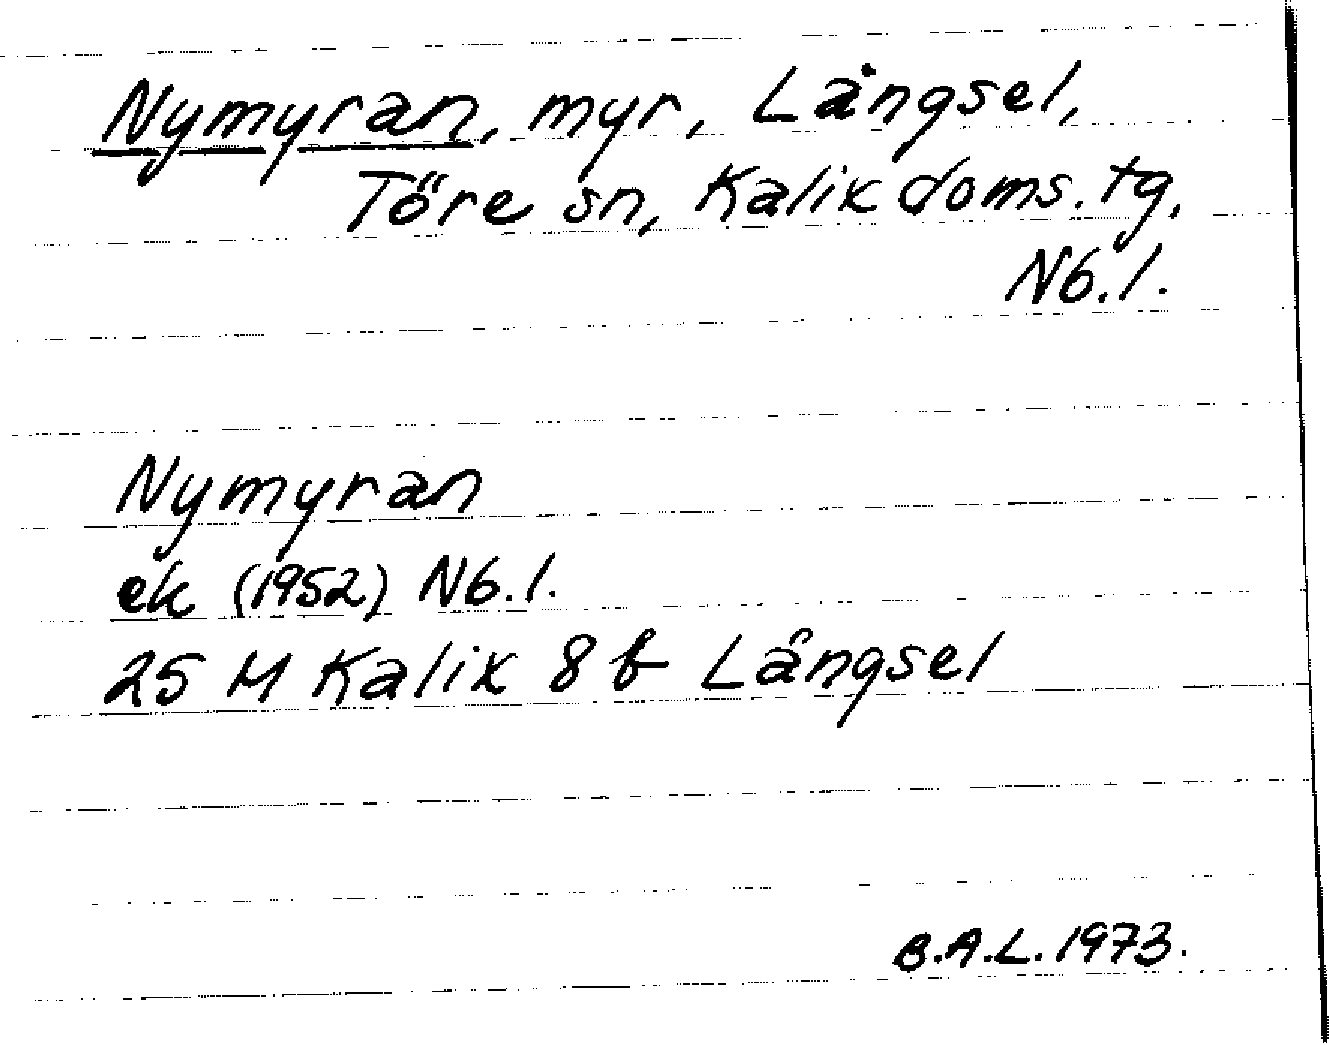 Nymyran, myr, Långsel,
Töre sn, Kalix doms. tg,
Nb. l.
Nymyran
ek (1952) Nb. l.
25 M Kalix 8 b Långsel
B.A.L. 1973.